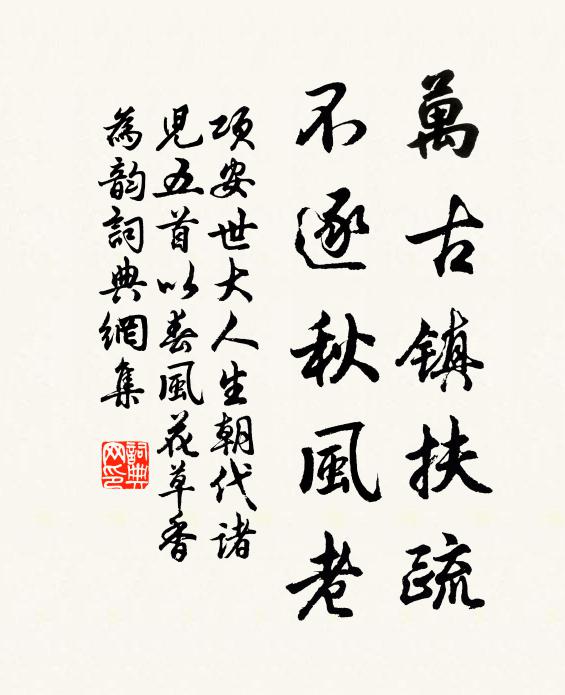 萬古鎮扶疏
不逐秋風老
項安世大人生朝代諸
児五首以春風花草香
為韵詞典網集
詞典
网印